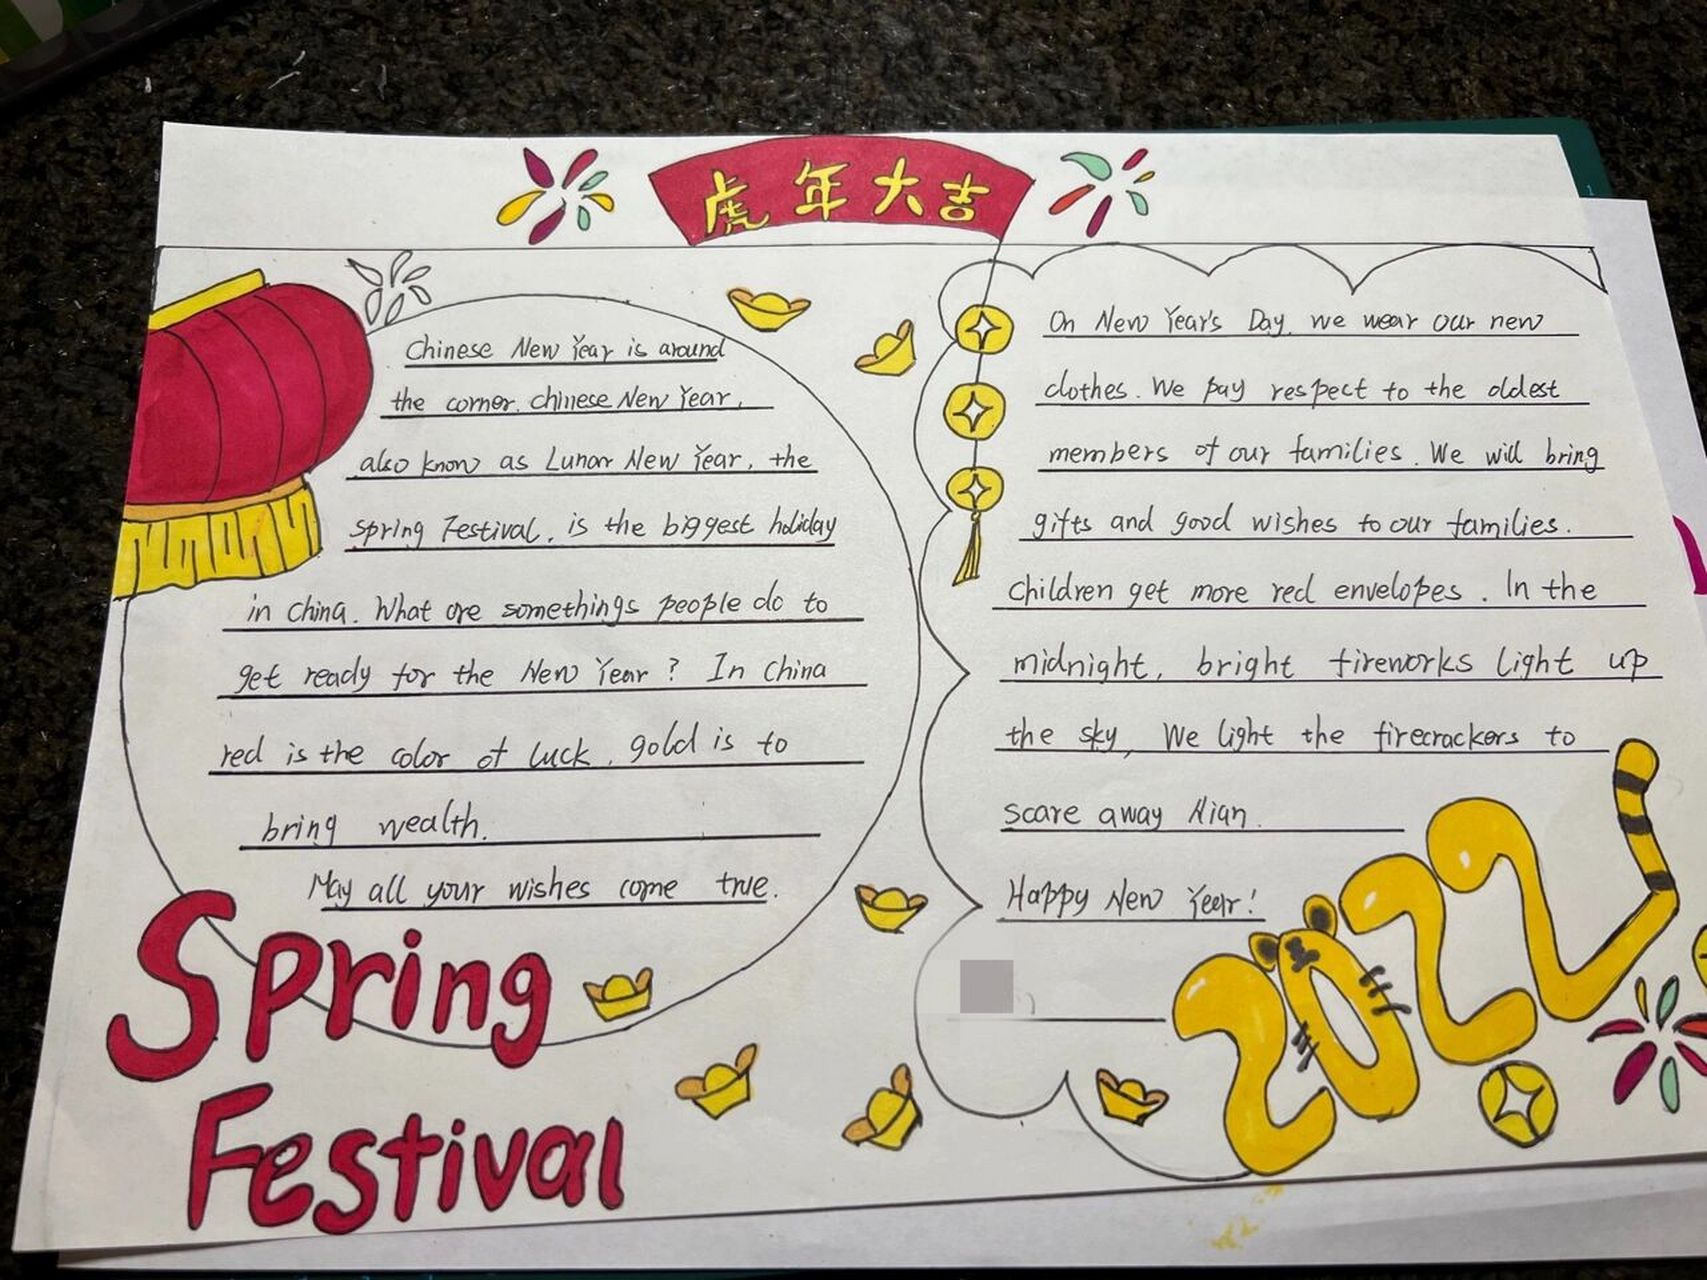 虎年大吉
Chinese New Year is around
the corner. chinese New Year,
also know as Lunar New Year, the
Spring Festival, is the biggest holiday
in China. What are somethings people do to
get ready for the New Year? In China
red is the color of luck, gold is to
bring wealth.
May all your wishes come true.
Spring
Festival
On New Year's Day, we wear our new
clothes. We pay respect to the oldest
members of our families. We will bring
gifts and good wishes to our families.
Children get more red envelopes. In the
midnight, bright fireworks light up
the sky, We light the firecrackers to
scare away Nian.
Happy New Year!
2022